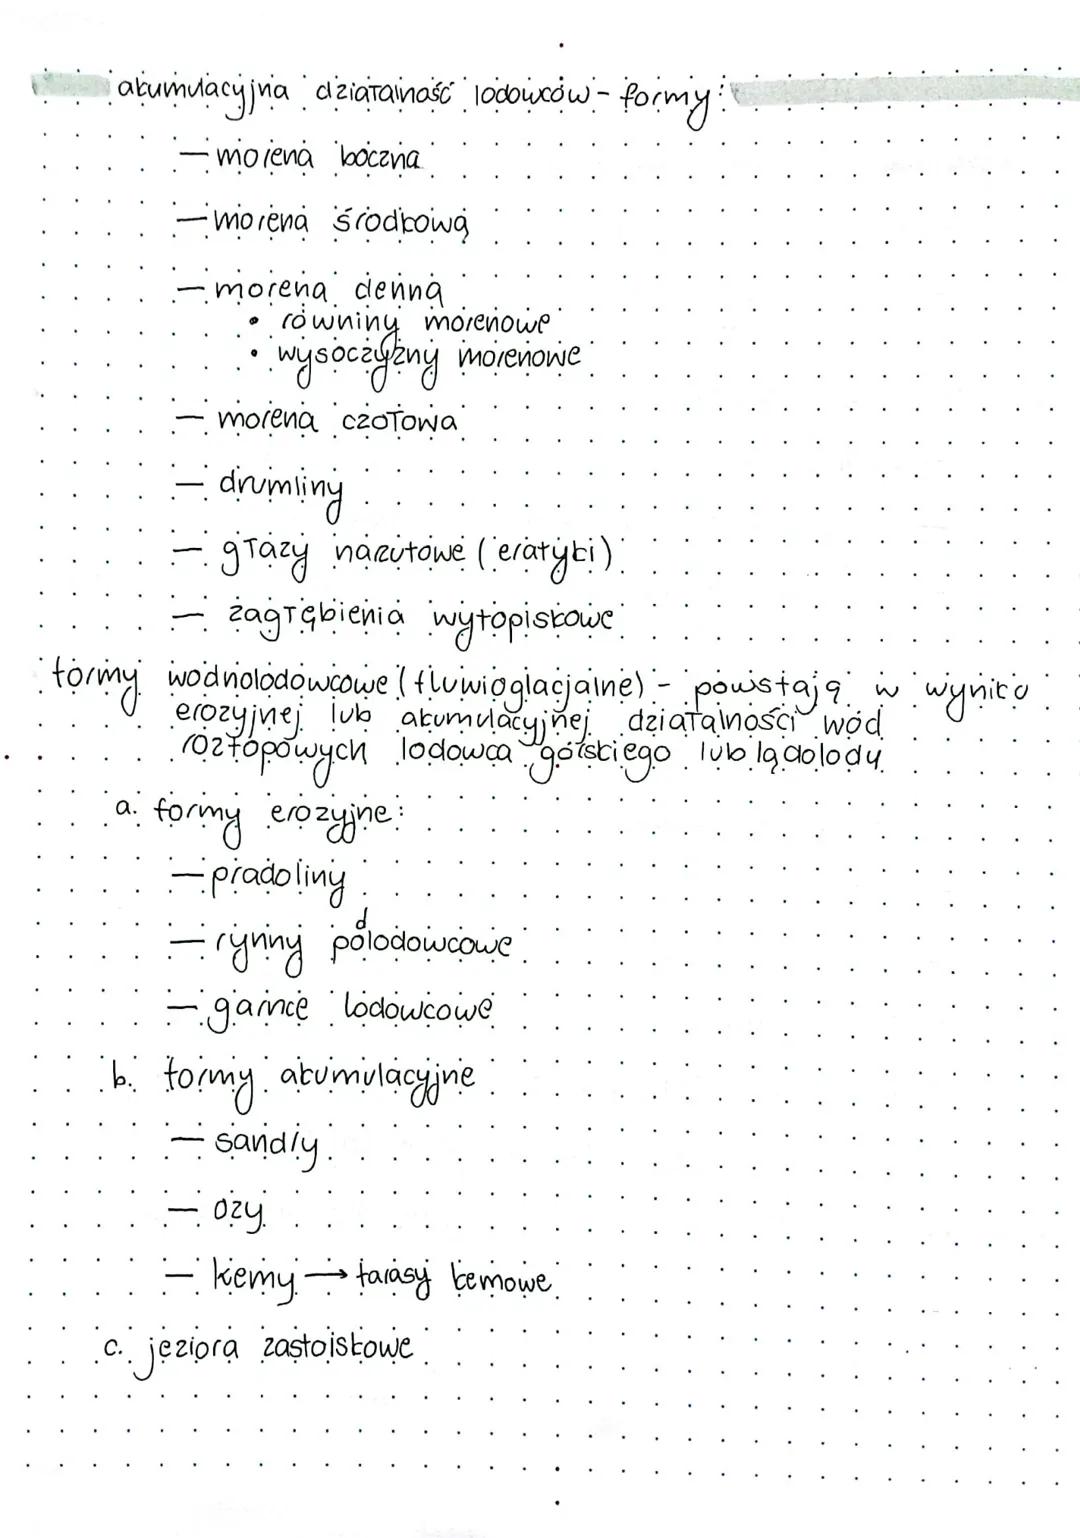 akumulacyjna działalność lodowców - formy:
— morena boczna
— morena środkowa
— morena denna
• równiny morenowe
• wysoczyzny morenowe
— morena czołowa
— drumliny
— głazy narzutowe (eratyki)
— zagłębienia wytopiskowe
formy wodnolodowcowe (fluwioglacjalne) - powstają w wyniku
erozyjnej lub akumulacyjnej działalności wód
roztopowych lodowca górskiego lub lądolodu
a. formy erozyjne:
— pradoliny
— rynny polodowcowe
— garnce lodowcowe
b. formy akumulacyjne
— sandry
— ozy
— kemy → tarasy kemowe
c. jeziora zastoiskowe